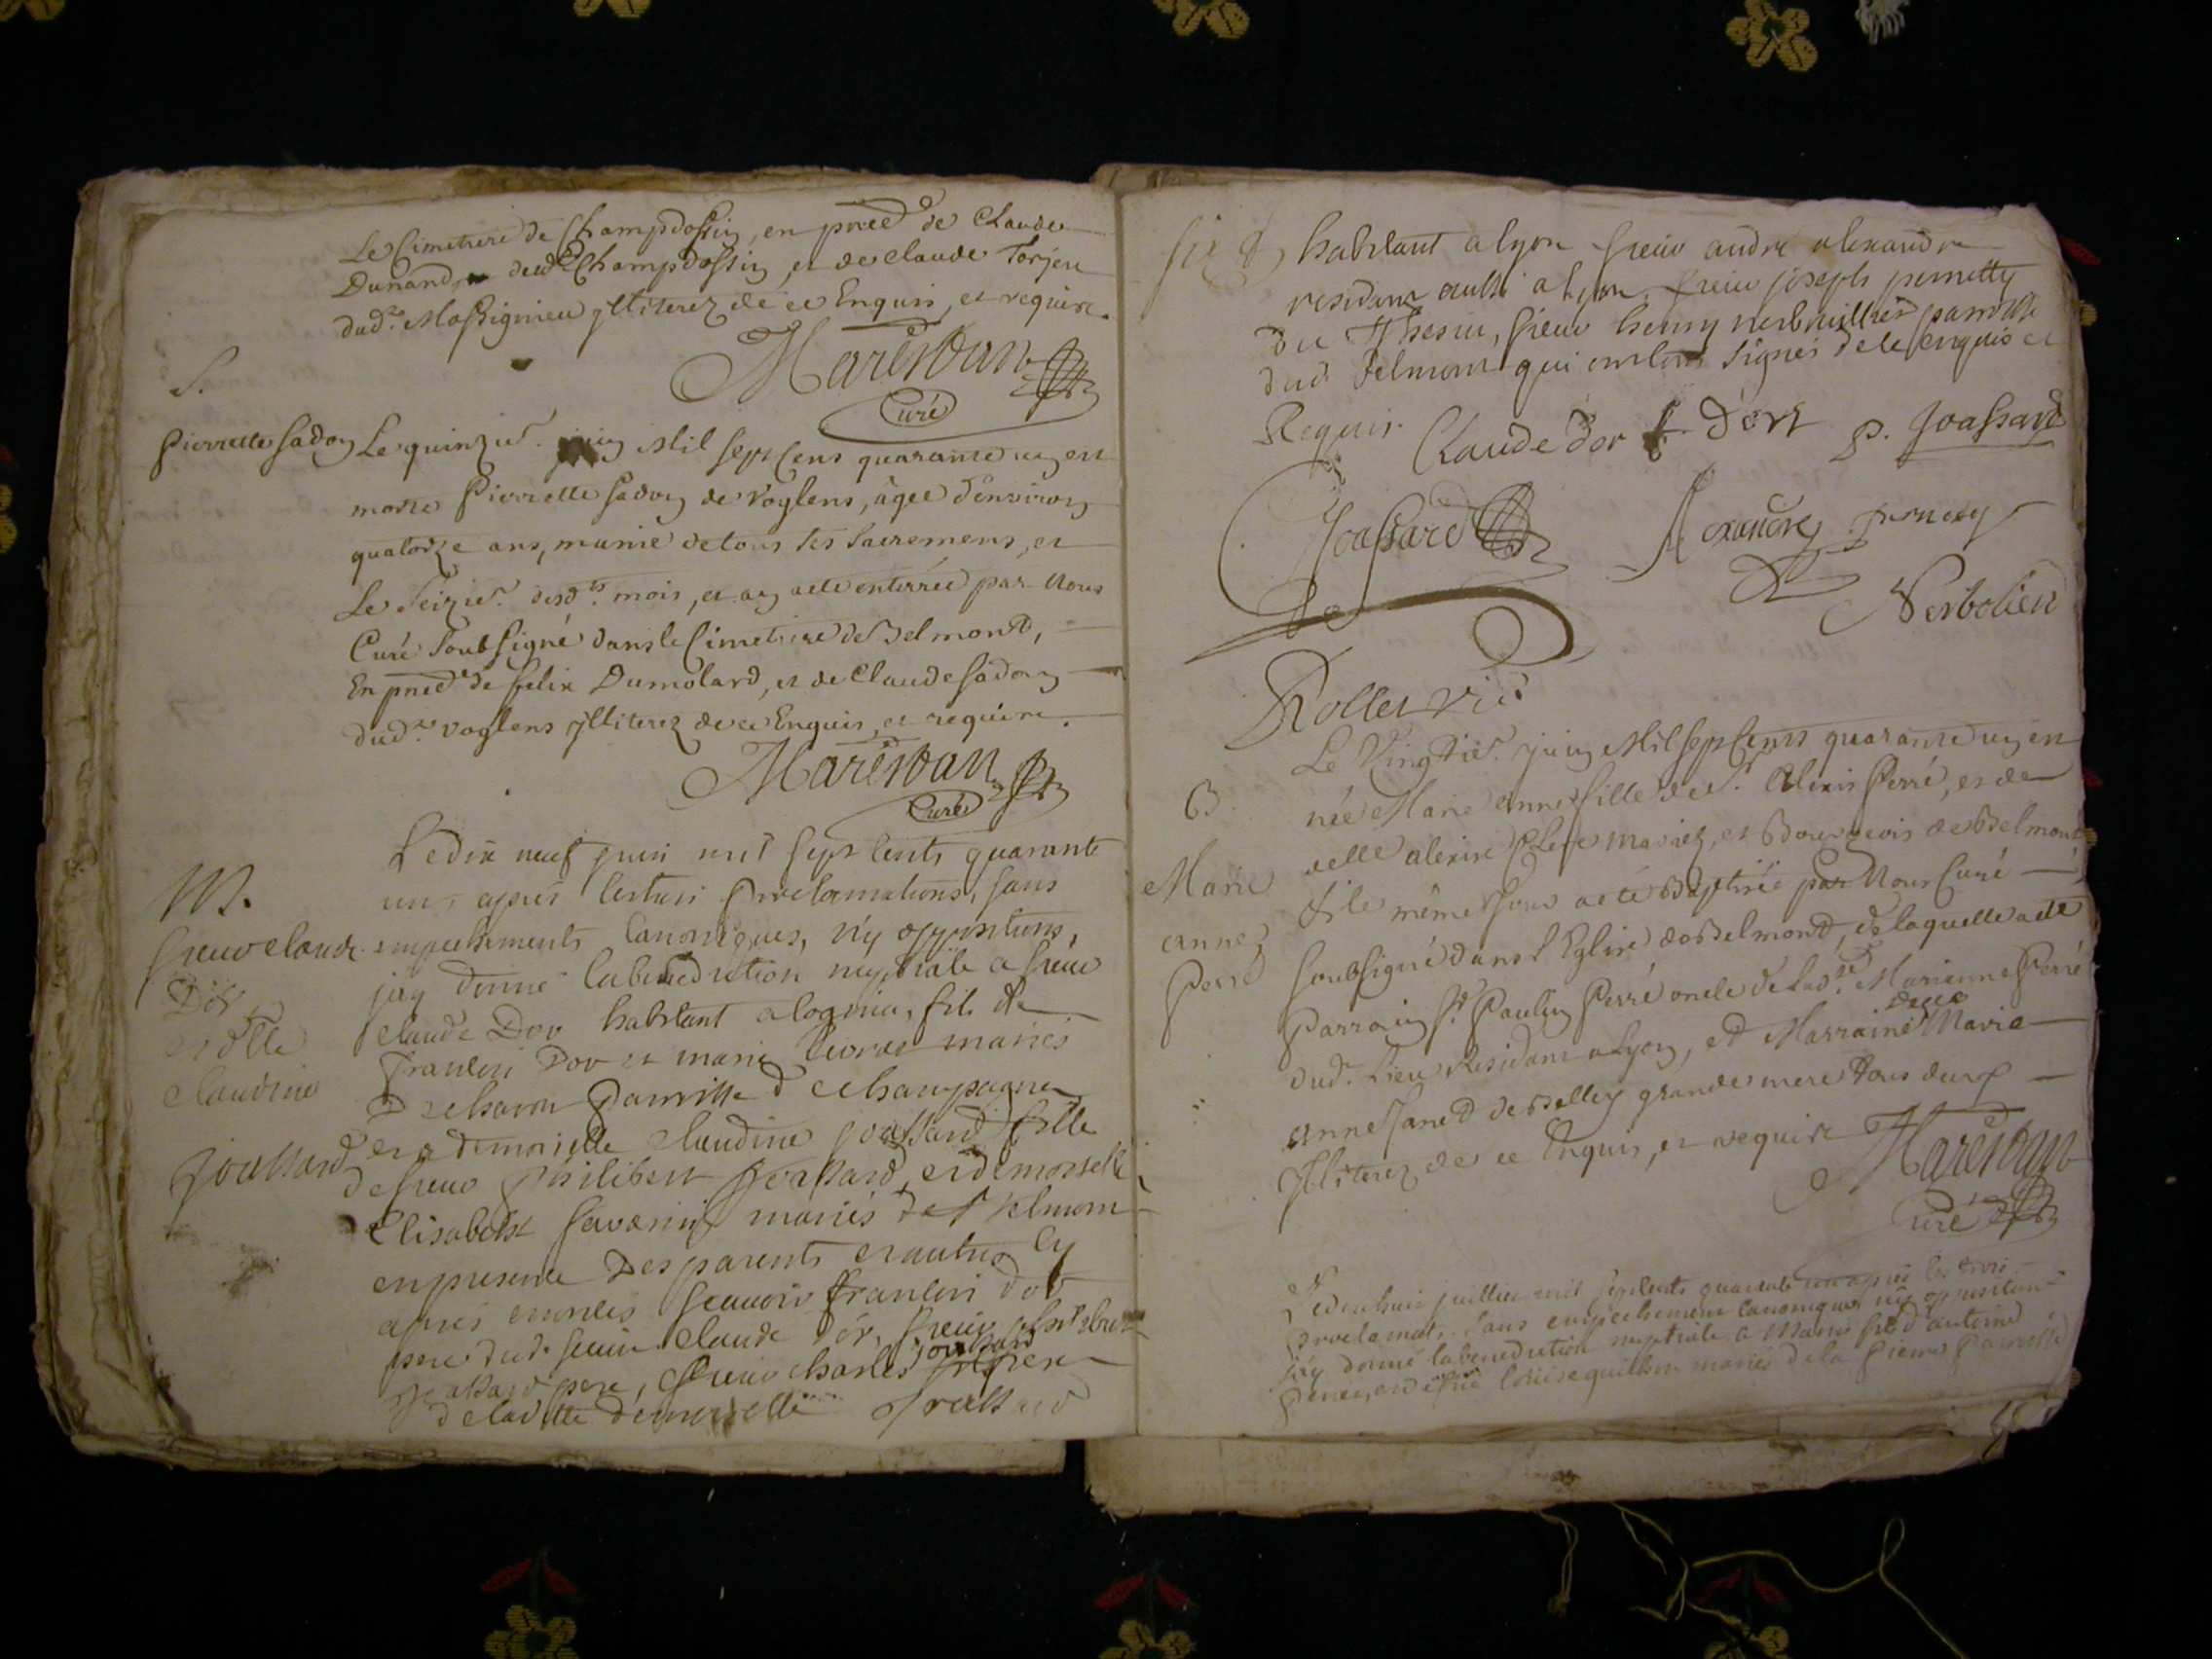 Le Cimetiere de Champdossin, en pnce de Claude
Dunand, dud Champdossin et de claude Torjeu
dud. Massignieu ylliterez de ce Enquis, et require.
Maréschan
Curé
S.
Pierrette Sadon
Le quinzie. juin Mil sept Cens quarante un est
morte Pierrette Sadon de Voglens, âgée d'environ
quatorze ans, munie de tous les Sacremens, et
Le Seizie. desd.ts mois, et an a ete enterrée par Nous
Curé Soubsigné dans le Cimetiere de Belmond,
En pnce de felix Dumolard, et de Claude Sadon
dud. voglens ylliterez de ce Enquis, et require.
Maréschan
Curé
M.
sieur claude
Dor
et dlle
claudine
Joassard
Le dix neuf juin mil sept cents quarante
un après les trois proclamations, sans
empechements Canoniques, n'y oppositions,
jay donné la benediction nuptiale a sieur
claude Dor habitant a lognin, fils de
francois Dor et marie mariés
De paroisse de champagne
et demoiselle claudine joassard fille
de sieur philibert Joassard, et demoiselle
Elisabeth Savarin mariés de Belmont
en presence Des parents et autres cy
après enoncés scavoir francois dor
pere dud. sieur claude dor, sieur philibert
Joassard pere, sieur charles joassard frere
de laditte demoiselle Joassard
habitant a lyon sieur andré alexandre
residant aussi a lyon, sieur joseph pernetty
du Thesiu, sieur henry paroisse
dud. Belmont qui ont tous signés de ce enquis et
Requis.
Claude dor f. Dort P. Joassard
Joassard Alexandre pernety
Verbolien
Rollet vic.
B
Marie
anne
Perré
Le Vingtie. juin Mil sept Cents quarante un est
née Marie anne fille de s.r Alexis Perré, et de
mariez, et Bourgeois de Belmont
et le même jour a eté Baptisée par Nous Curé
soubsigné dans l'Eglise de Belmond, de laquelle a ete
Parrain S.r Paulin Perré oncle de lad.e Marianne Perré
dud. Lieu Residant a Lyon, et Marraine Marie
anne Janet de Belley grande mere tous deux
Illiterez de ce Enquis, et require
Maréschan
Curé
Le juillier mil sept cents quarante un après les trois
proclamat. sans empechement canonique n'y opposition
jay donné la benediction nuptiale a Marie fils d'antoine
mariés de la paroisse